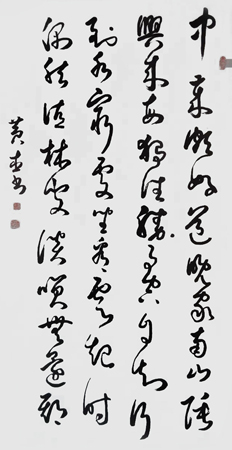 中岁颇好道晚家南山陲
兴来每独往胜事空自知行
到水穷处坐看云起时
偶然值林叟谈笑无还期